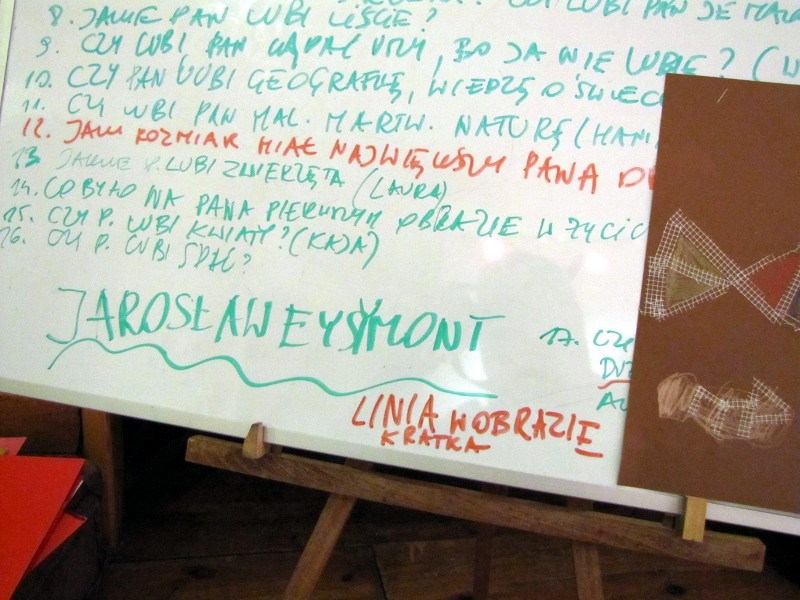 CZY LUBI PAN
8. JAKIE PAN LUBI LIŚCIE?
9. CZY LUBI PAN KĄPAĆ USZY, BO JA NIE LUBIĘ?
10. CZY PAN LUBI GEOGRAFIĘ, WIEDZĘ O ŚWIEC
11. CZY LUBI PAN MAL. MARTW. NATURĘ (HANI
12. JAKI ROZMIAR MIAŁ NAJWIĘKSZY PANA
13 JAKIE P. LUBI ZWIERZĘTA (LAURA)
14. CO BYŁO NA PANA PIERWSZYM OBRAZIE W ŻYCIU
15. CZY P. LUBI KWIATY? (KAJA)
16. CZY P. LUBI SPAĆ?
JAROSŁAW EYSYMONT
17. CZE
LINIA W OBRAZIE
KRATKA